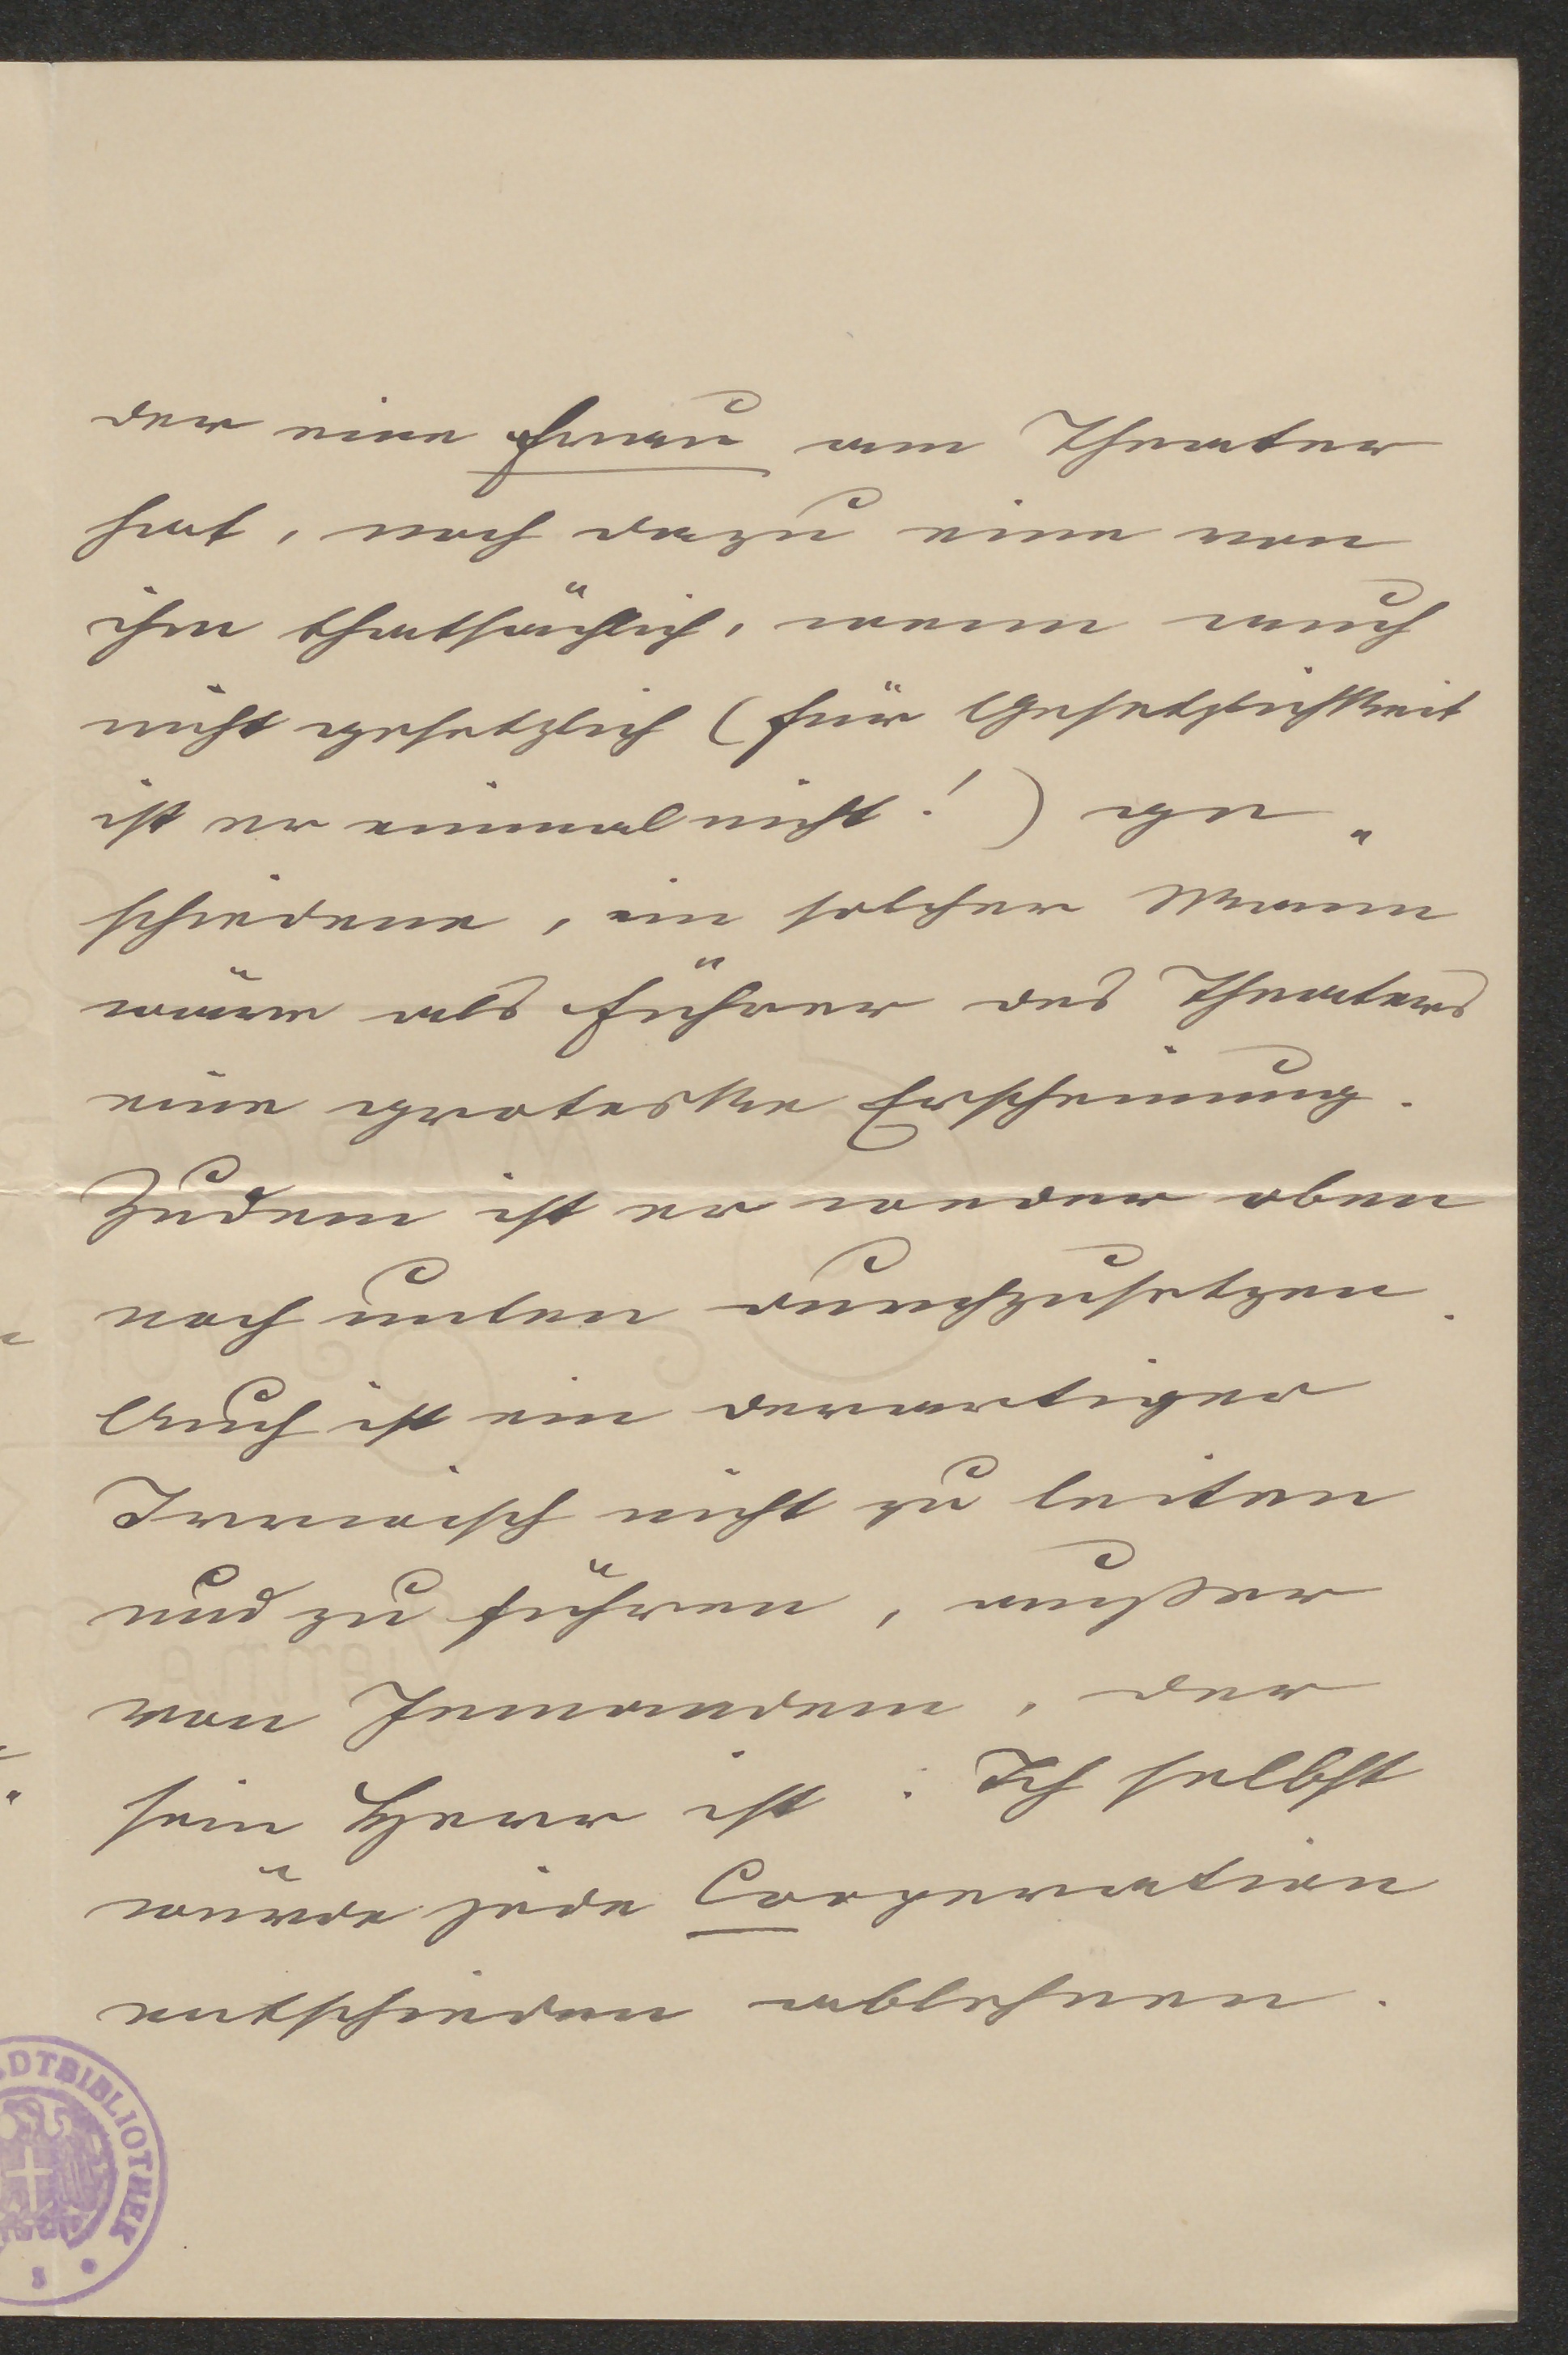 der eine Frau am Theater
hat, noch dazu eine von
ihm thatsächlich, wenn auch
nicht gesetzlich (für Gesetzlichkeit
ist er einmal nicht!) ge„
schiedene, ein solcher Mann
wäre als Führer des Theaters
eine groteske Erscheinung.
Zudem ist er weder oben
noch unten durchzusetzen.
Auch ist ein derartiger
Irrwisch nicht zu leiten
und zu führen, außer
von Jemandem, der
sein Herr ist. Ich selbst
würde jede Cooperation
entschieden ablehnen.
DTBIBLIOTHEK